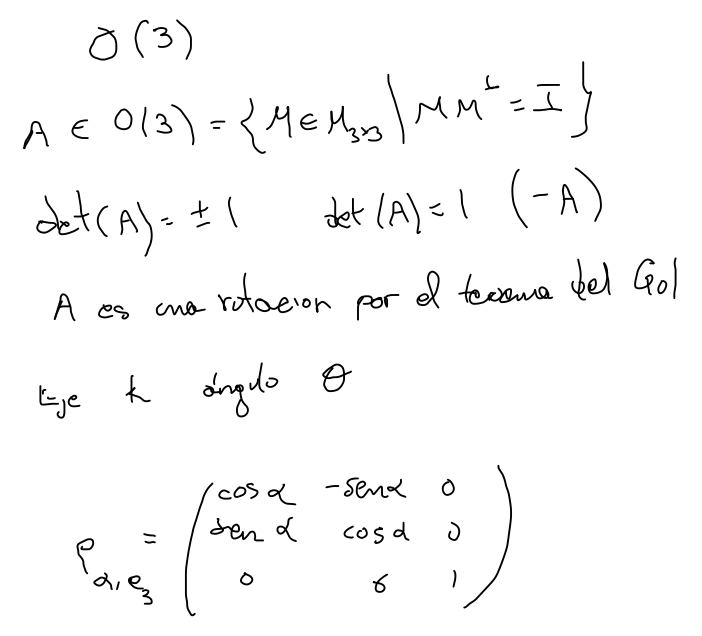 O(3)
A ∈ O(3) = {M ∈ M₃ₓ₃ | M Mᵗ = I}
det(A) = ±1 det(A) = 1 (-A)
A es una rotación por el teorema del Gol
Eje k ángulo θ
cos α -sen α 0
ρ_{α,e₃} = sen α cos α 0
0 0 1